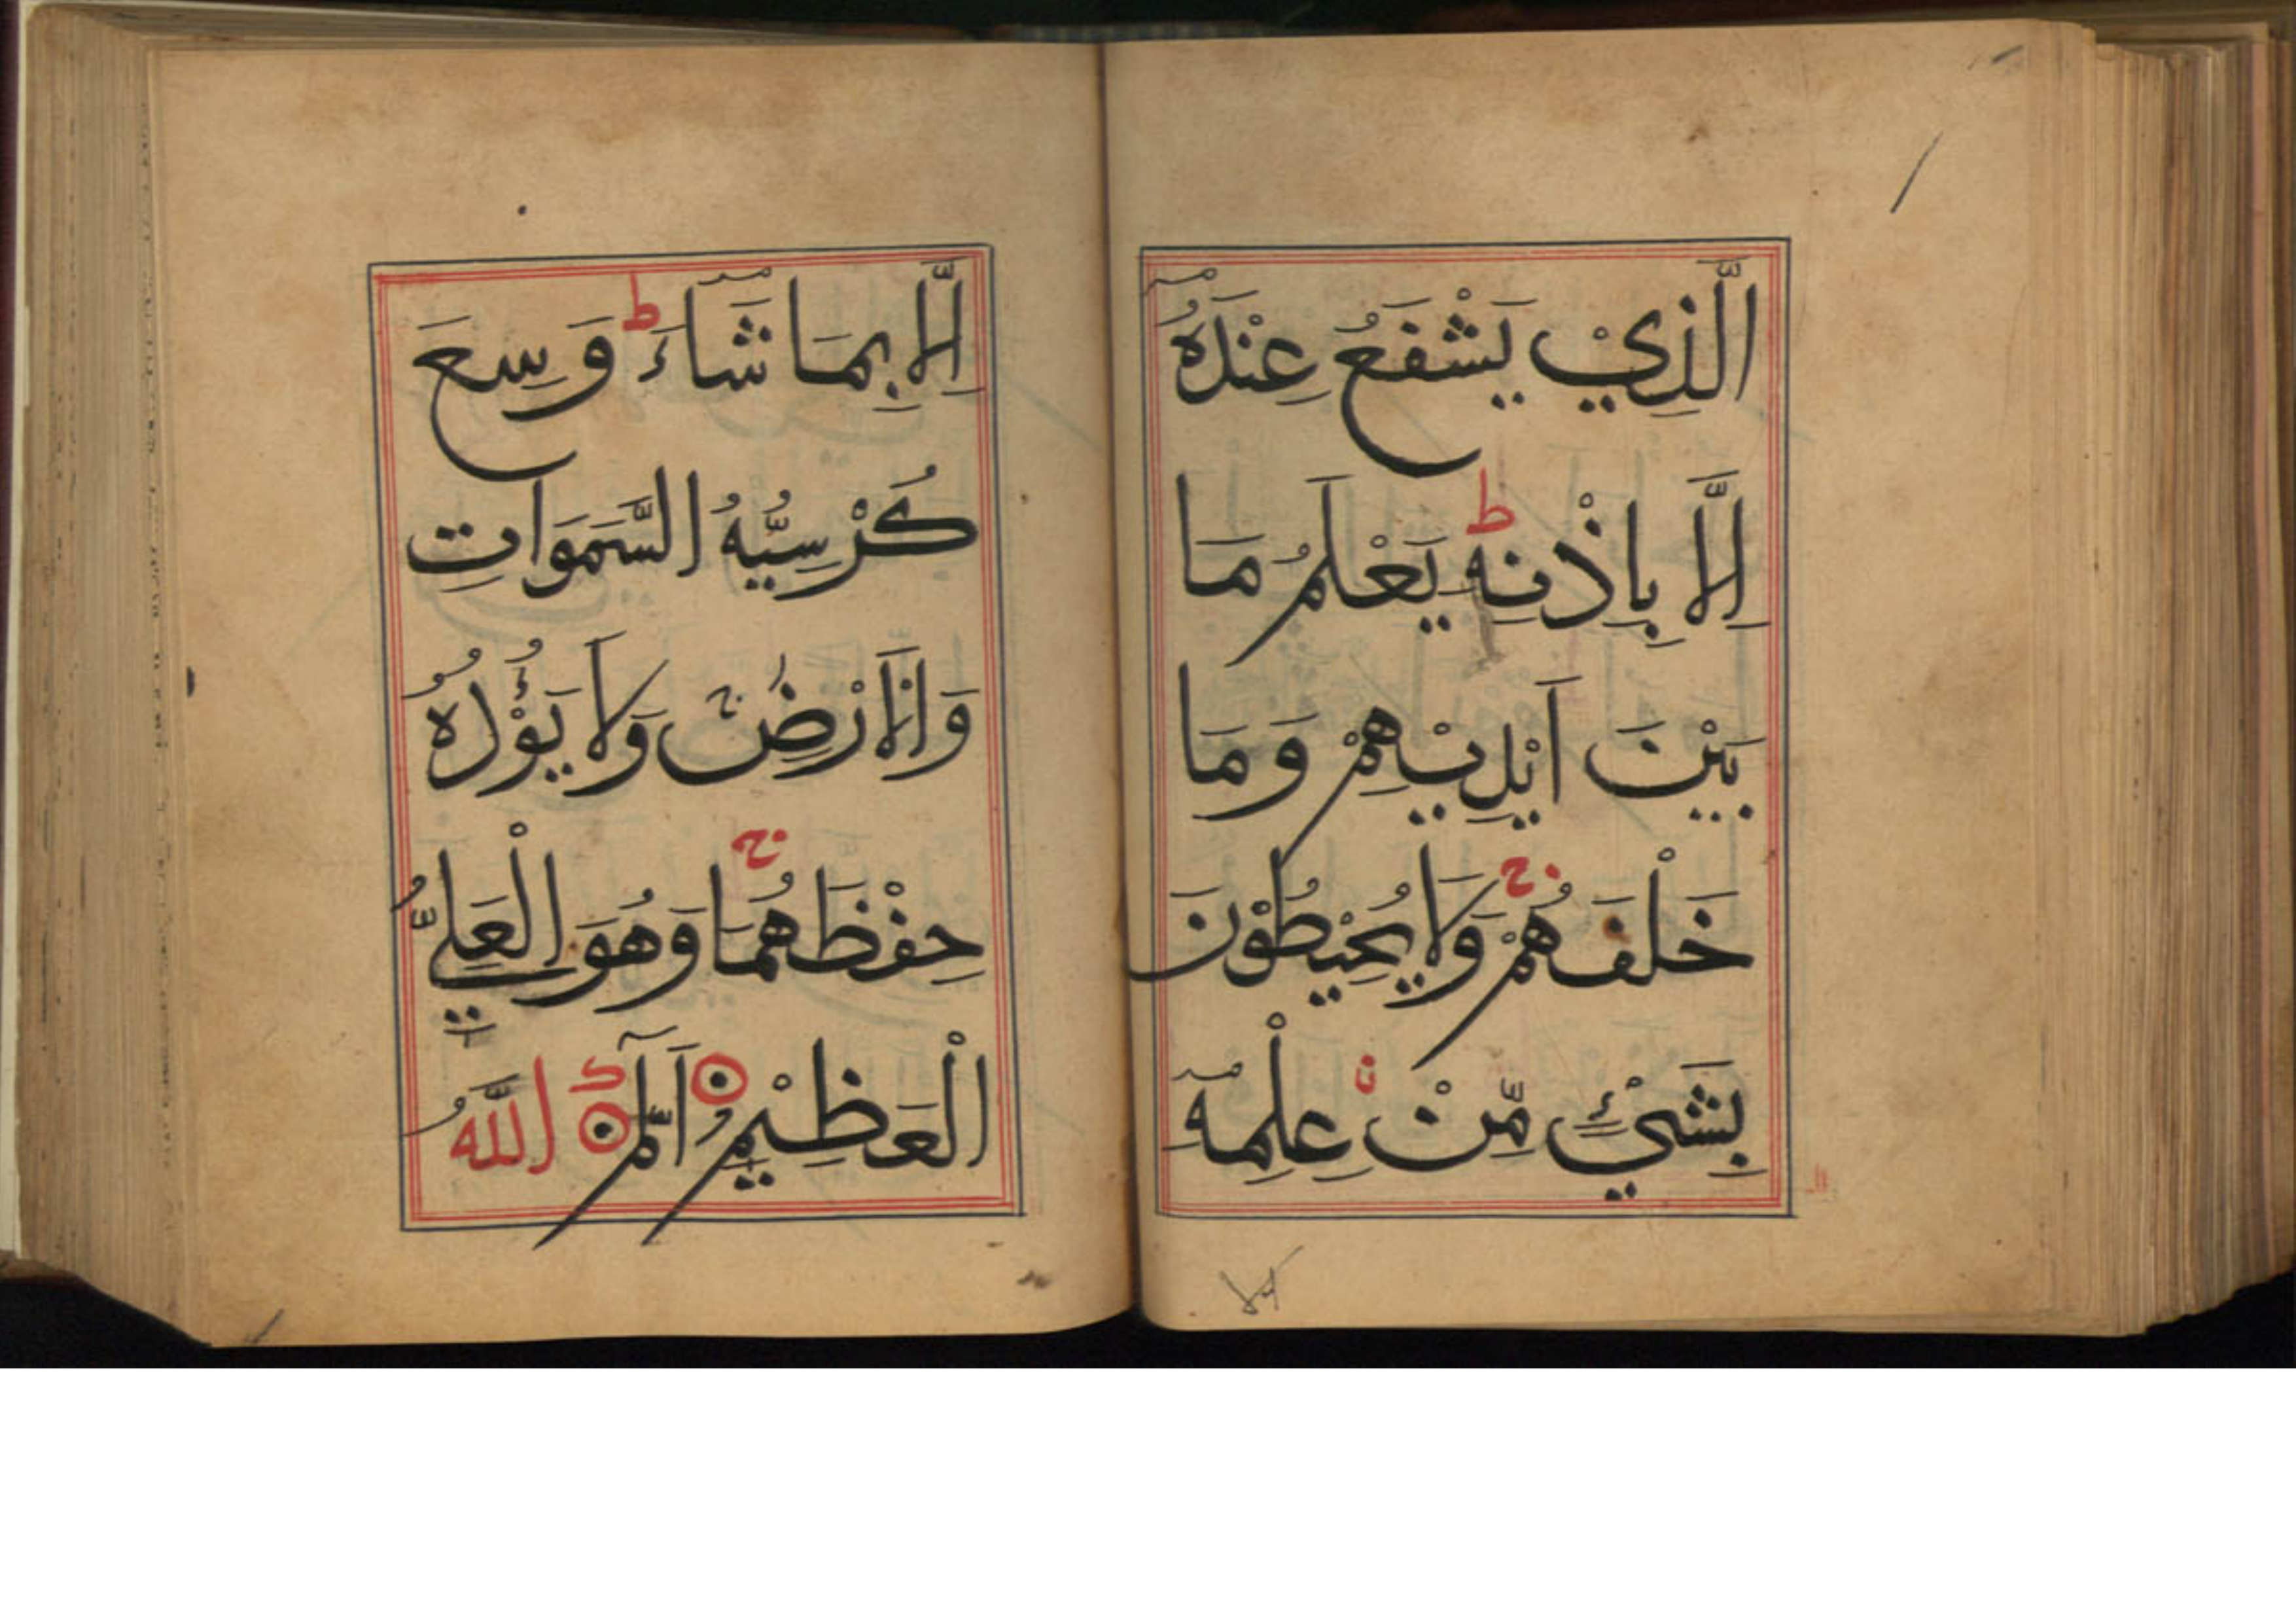 الَّذِيْ يَشْفَعُ عِنْدَهُ
اِلَّا بِاِذْنِهٖ ط يَعْلَمُ مَا
بَيْنَ اَيْدِيْهِمْ وَمَا
خَلْفَهُمْ ج وَلَا يُحِيْطُوْنَ
بِشَيْءٍ مِّنْ عِلْمِهٖ
اِلَّا بِمَا شَآءَ ط وَسِعَ
كُرْسِيُّهُ السَّمَوَاتِ
وَالْاَرْضَ ج وَلَا يَؤُدُهُ
حِفْظُهُمَا ج وَهُوَ الْعَلِيُّ
الْعَظِيْمُ الٓمّٓ اللّٰهُ